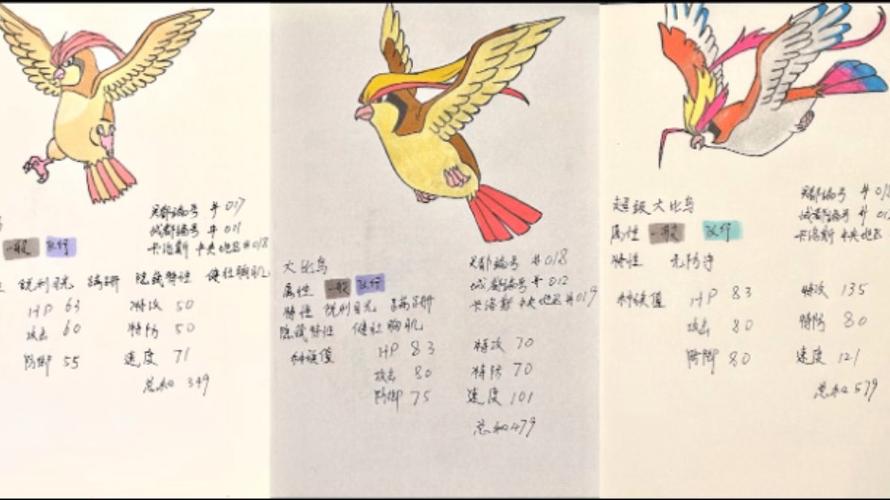 关都编号 #017
城都编号 #011
卡洛斯 中央地区 #018
一般 飞行
锐利目光 蹒跚 隐藏特性 健壮胸肌
HP 63 特攻 50
攻击 60 特防 50
防御 55 速度 71
总和 349
大比鸟
关都编号 #018
城都编号 #012
卡洛斯 中央地区 #019
属性 一般 飞行
特性 锐利目光 蹒跚
隐藏特性 健壮胸肌
种族值 HP 83 特攻 70
攻击 80 特防 70
防御 75 速度 101
总和 479
超级大比鸟
关都编号 #018
城都编号 #012
卡洛斯 中央地区
属性 一般 飞行
特性 无防守
种族值 HP 83 特攻 135
攻击 80 特防 80
防御 80 速度 121
总和 579